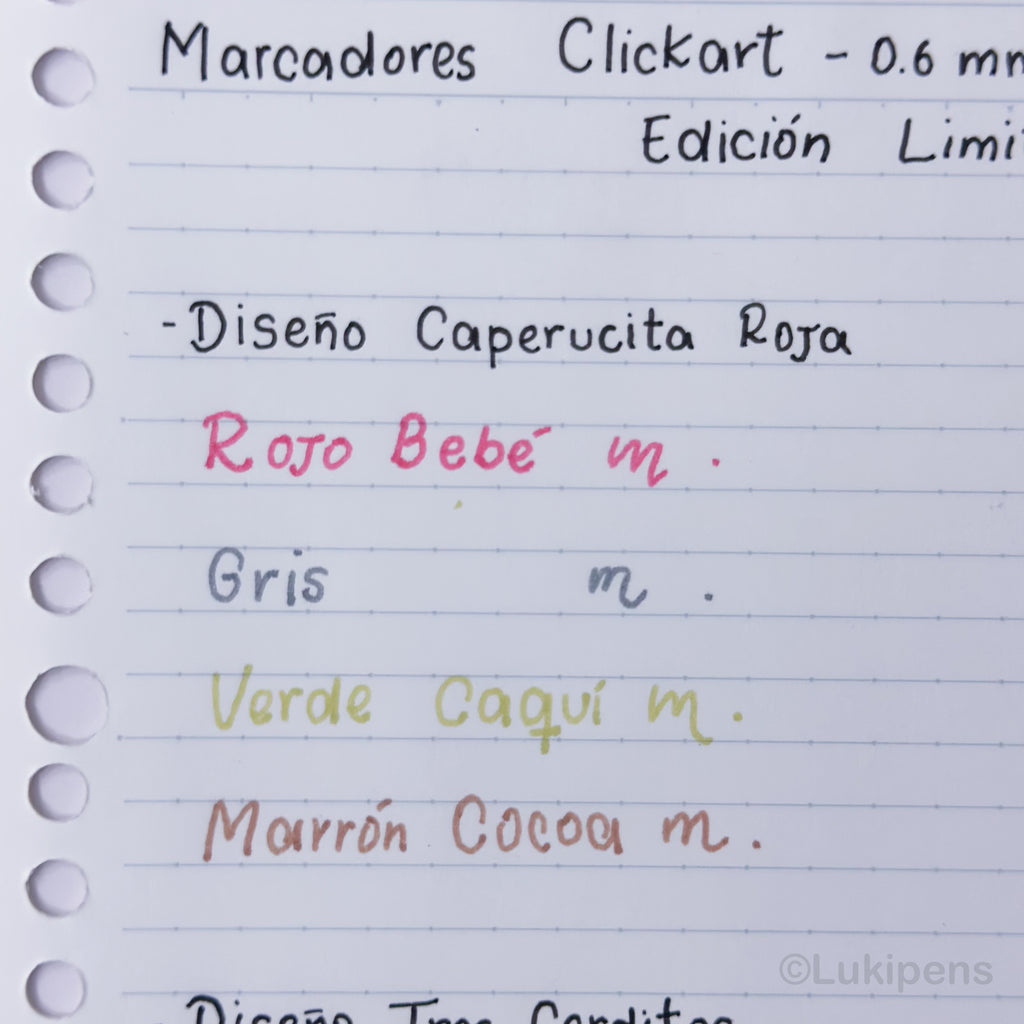 Marcadores Clickart - 0.6 mm
Edición Limi
-Diseño Caperucita Roja
Rojo Bebé m .
Gris m .
Verde Caquí m .
Marrón Cocoa m .
©Lukipens
Diseño Tres Cerditos